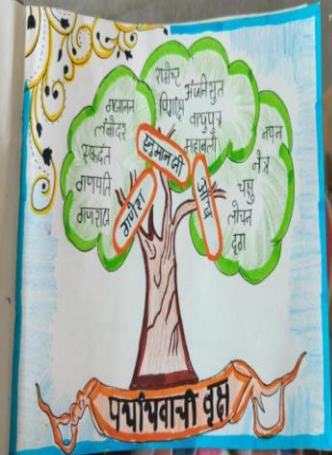 गजानन
लंबोदर
एकदंत
गणपति
गणराज
गणेश
रामेष्ट
अंजनि सुत
पिंगाक्ष
वायुपुत्र
महाबली
हनुमान जी
नयन
नेत्र
चक्षु
लोचन
दृग
आँख
पर्यायवाची वृक्ष